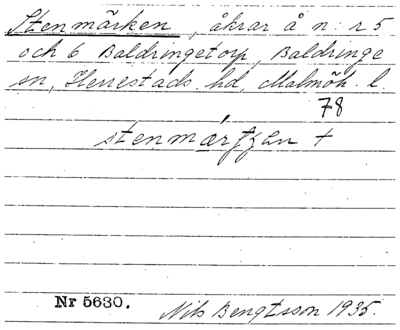 Stenmärken, åkrar å n:r 5
och 6 Baldringetorp, Baldringe
sn, Herrestads hd, Malmöh. l.
78
Nr 5630.
Nils Bengtsson 1935.